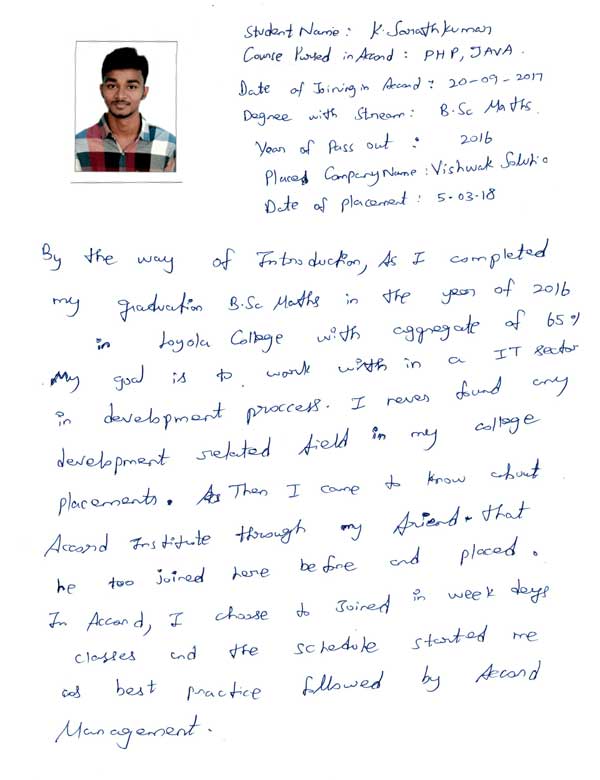 Student Name : K. Sarath kumar
Course Pursed in Accord : PHP, JAVA.
Date of Joining in Accord : 20-09-2017
Degree with Stream : B.Sc Maths.
Year of Pass out : 2016
Placed Company Name : Vishwak Solutio
Date of placement : 5-03-18
By the way of Introduction, As I completed
my graduation B.Sc Maths in the year of 2016
in Loyola College with aggregate of 65%
My goal is to work with in a IT sector
in development proccess. I never found any
development related field in my college
placements. As Then I came to know about
Accord Institute through my friend. that
he too joined here before and placed.
In Accord, I choose to Joined in week days
classes and the schedule started me
as best practice followed by Accord
Management.